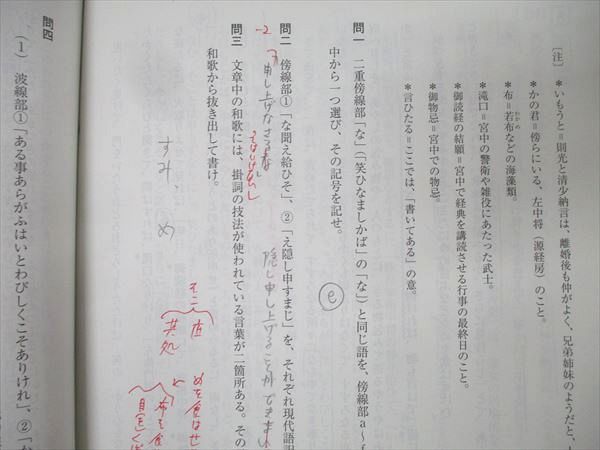 〔注〕
*いもうと＝則光と清少納言は、離婚後も仲がよく、兄弟姉妹のようだと、
*かの君＝傍らにいる、左中将（源経房）のこと。
*布＝若布などの海藻類。
わかめ
*滝口＝宮中の警衛や雑役にあたった武士。
*御読経の結願＝宮中で経典を講読させる行事の最終日のこと。
*御物忌＝宮中での物忌。
*言ひたる＝ここでは、「書いてある」の意。
問一　二重傍線部「な」（「笑ひなましかば」の「な」）と同じ語を、傍線部a～f
中から一つ選び、その記号を記せ。
e
問二　傍線部①「な聞え給ひそ」、②「え隠し申すまじ」を、それぞれ現代語訳
申し上げなさるな
隠し申し上げることができまい
-2
問三　文章中の和歌には、掛詞の技法が使われている言葉が二箇所ある。その
和歌から抜き出して書け。
すみ、め
そこ
直
其処
め
めを食はせ
布を食
目
問四
（1）　波線部①「ある事あらがふはいとわびしくこそありけれ」、②「